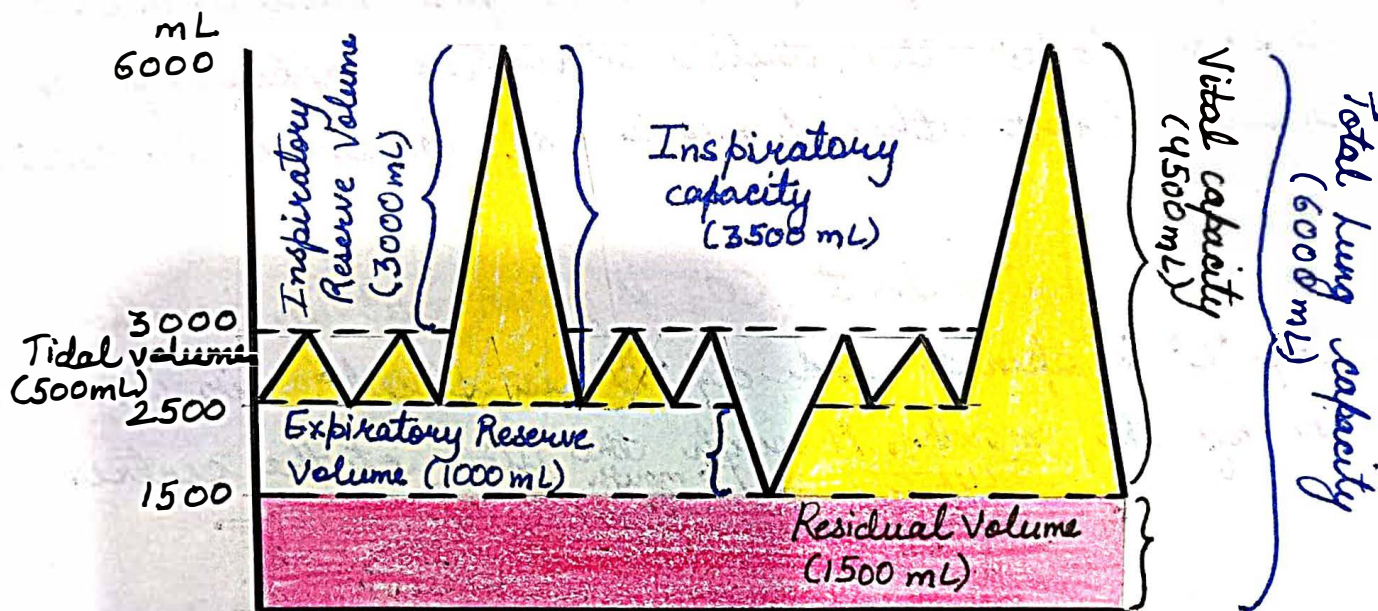 mL
6000
Inspiratory
Reserve Volume
(3000mL)
Inspiratory
capacity
(3500 mL)
Vital capacity
(4500mL)
Total Lung capacity
(6000 mL)
3000
Tidal volume
(500mL)
2500
Expiratory Reserve
Volume (1000 mL)
1500
Residual Volume
(1500 mL)